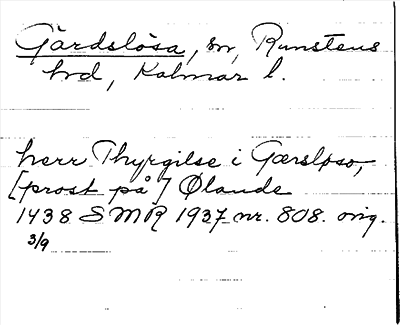 Gärdslösa, sn, Runstens
hd, Kalmar l.
herr Thyrgilse i Gærsløso,
[prost på] Ølande
1438 SMR 1937 nr. 808. orig.
3/9